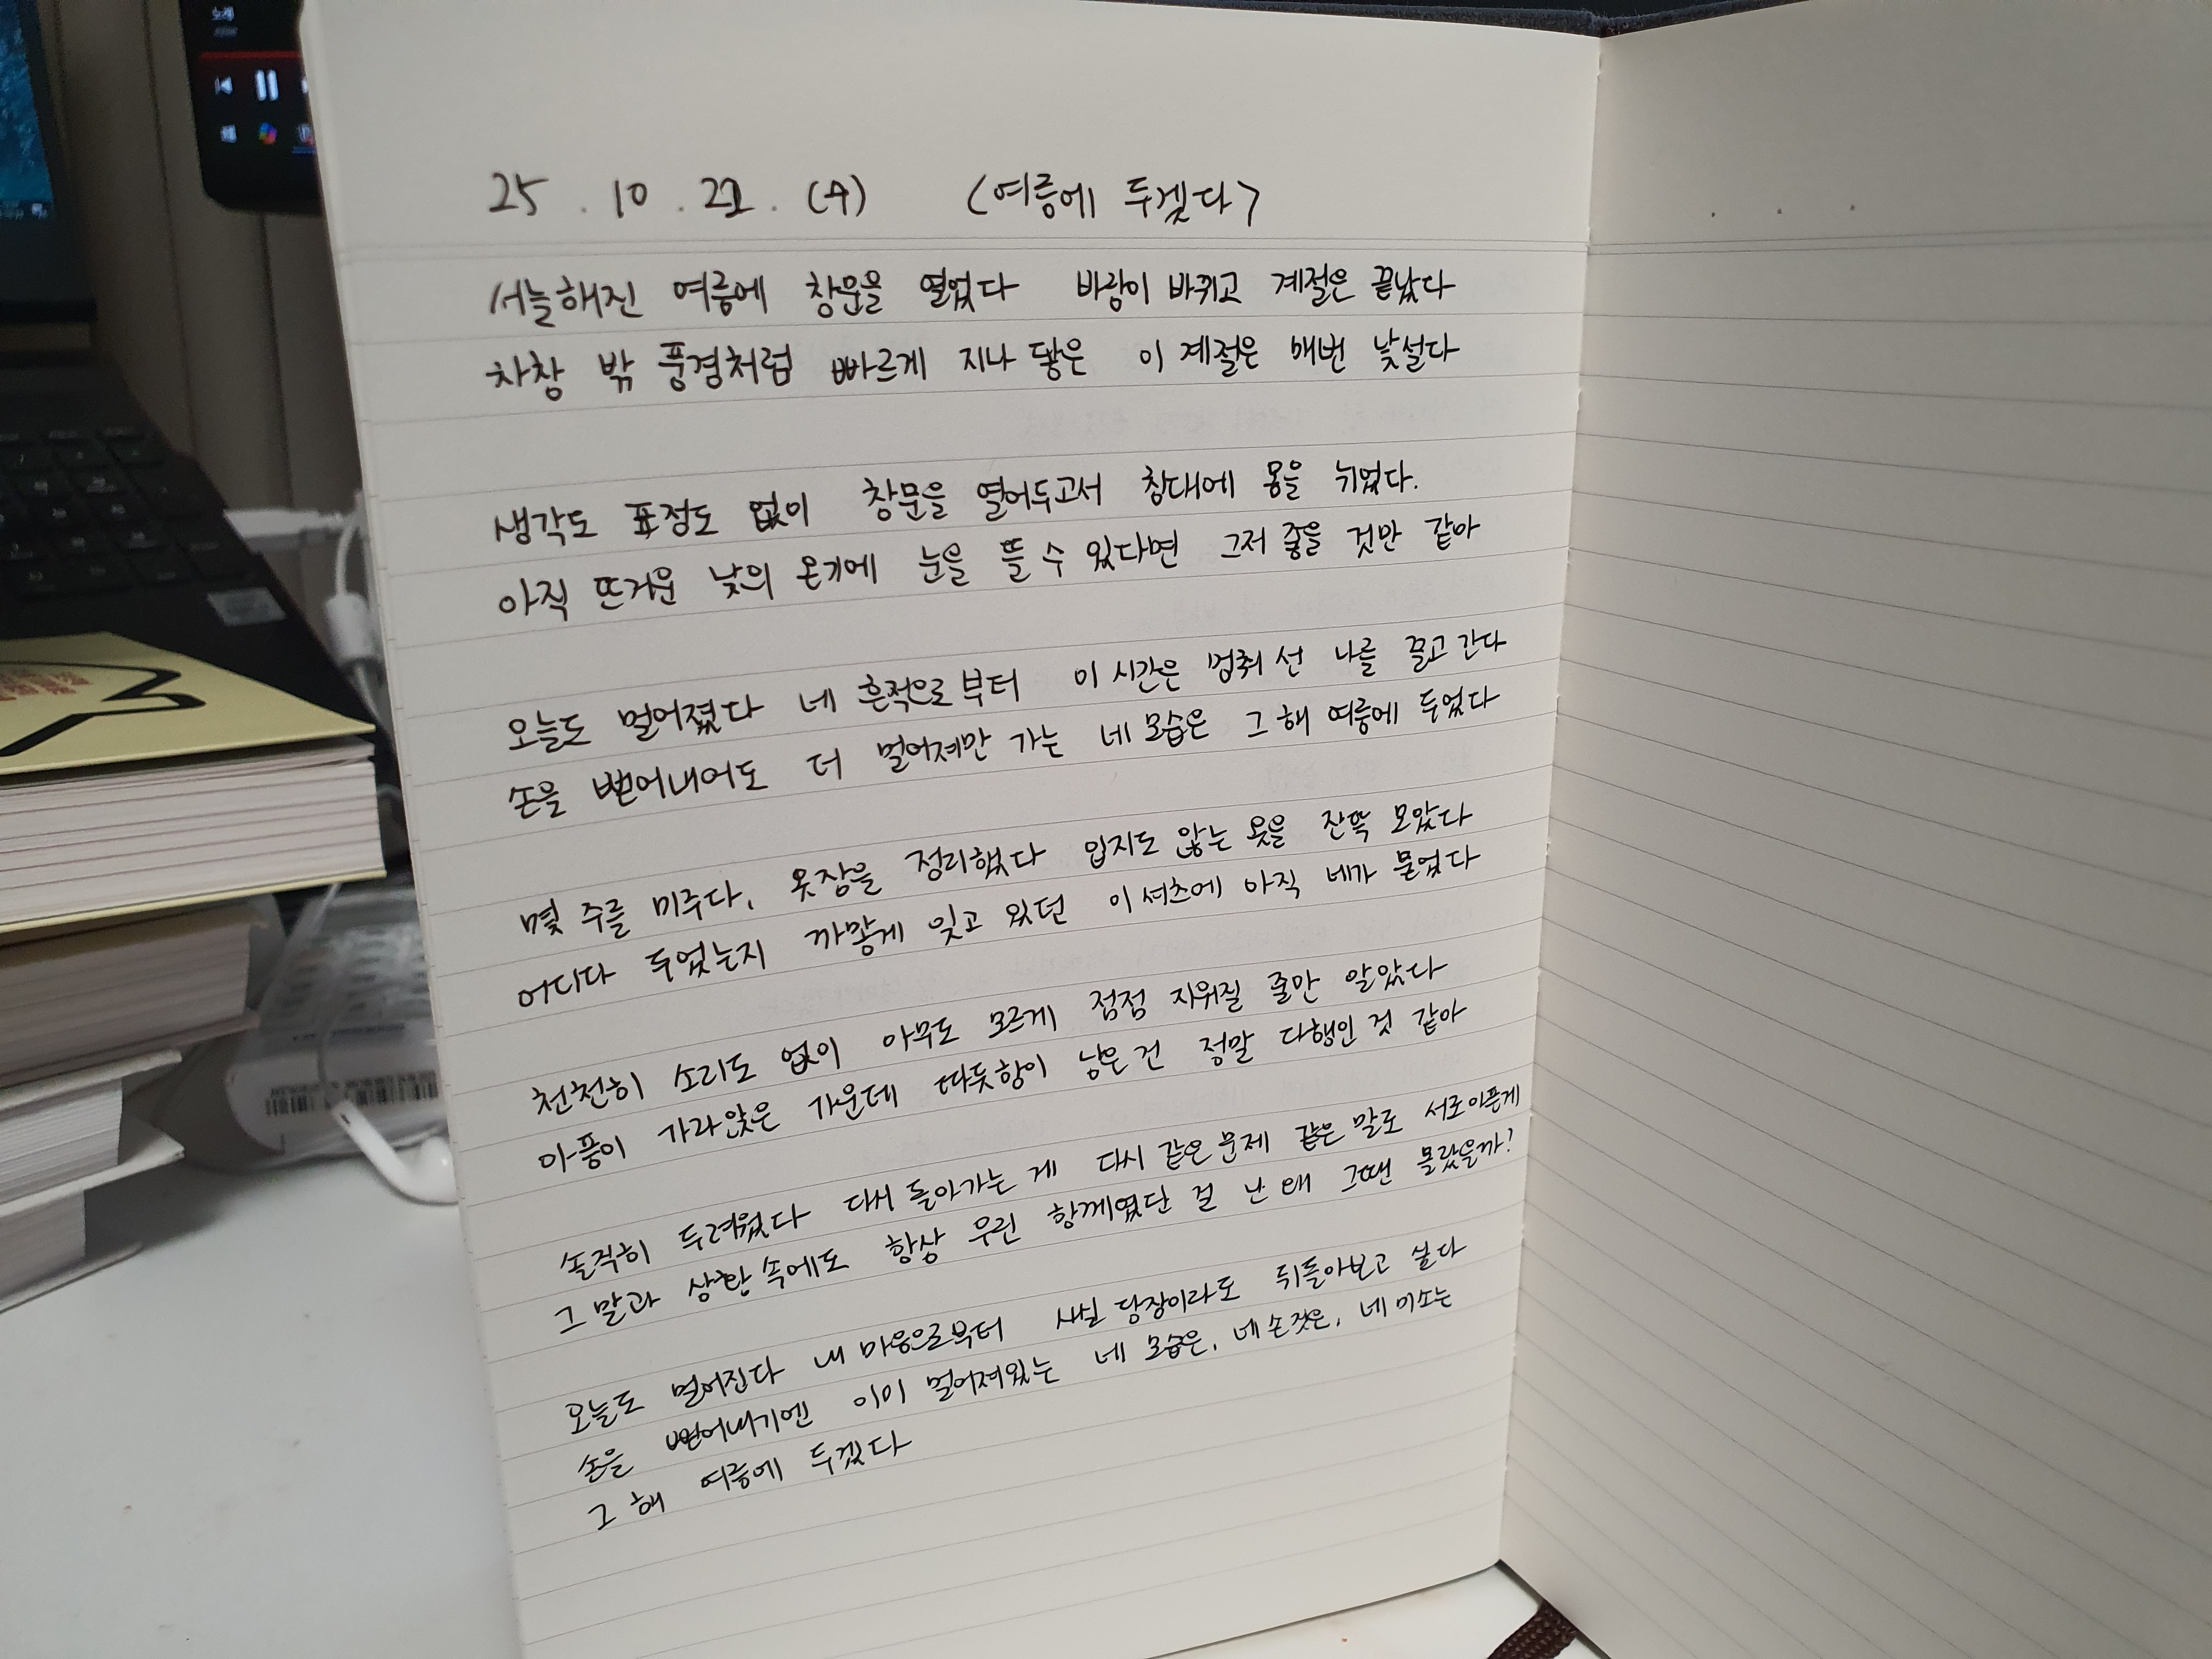 25. 10. 22. (수) <여름에 두겠다>
서늘해진 여름에 창문을 열었다 바람이 바뀌고 계절은 끝났다
차창 밖 풍경처럼 빠르게 지나 닿은 이 계절은 매번 낯설다
생각도 표정도 없이 창문을 열어두고서 침대에 몸을 뉘었다.
아직 뜨거운 낮의 온기에 눈을 뜰 수 있다면 그저 좋을 것만 같아
오늘도 멀어졌다 네 흔적으로부터 이 시간은 멈춰 선 나를 끌고 간다
손을 뻗어내어도 더 멀어져만 가는 네 모습은 그 해 여름에 두었다
몇 주를 미루다, 옷장을 정리했다 입지도 않는 옷을 잔뜩 모았다
어디다 두었는지 까맣게 잊고 있던 이 셔츠에 아직 네가 묻었다
천천히 소리도 없이 아무도 모르게 점점 지워질 줄만 알았다
아픔이 가라앉은 가운데 따듯함이 남은 건 정말 다행인 것 같아
솔직히 두려웠다 다시 돌아가는 게 다시 같은 문제 같은 말로 서로 아픈 게
그 말과 상황 속에도 항상 우린 함께였단 걸 난 왜 그땐 몰랐을까?
오늘도 멀어진다 내 마음으로부터 사실 당장이라도 뒤돌아보고 싶다
손을 뻗어내기엔 이미 멀어져있는 네 모습은, 네 손짓은, 네 미소는
그 해 여름에 두겠다